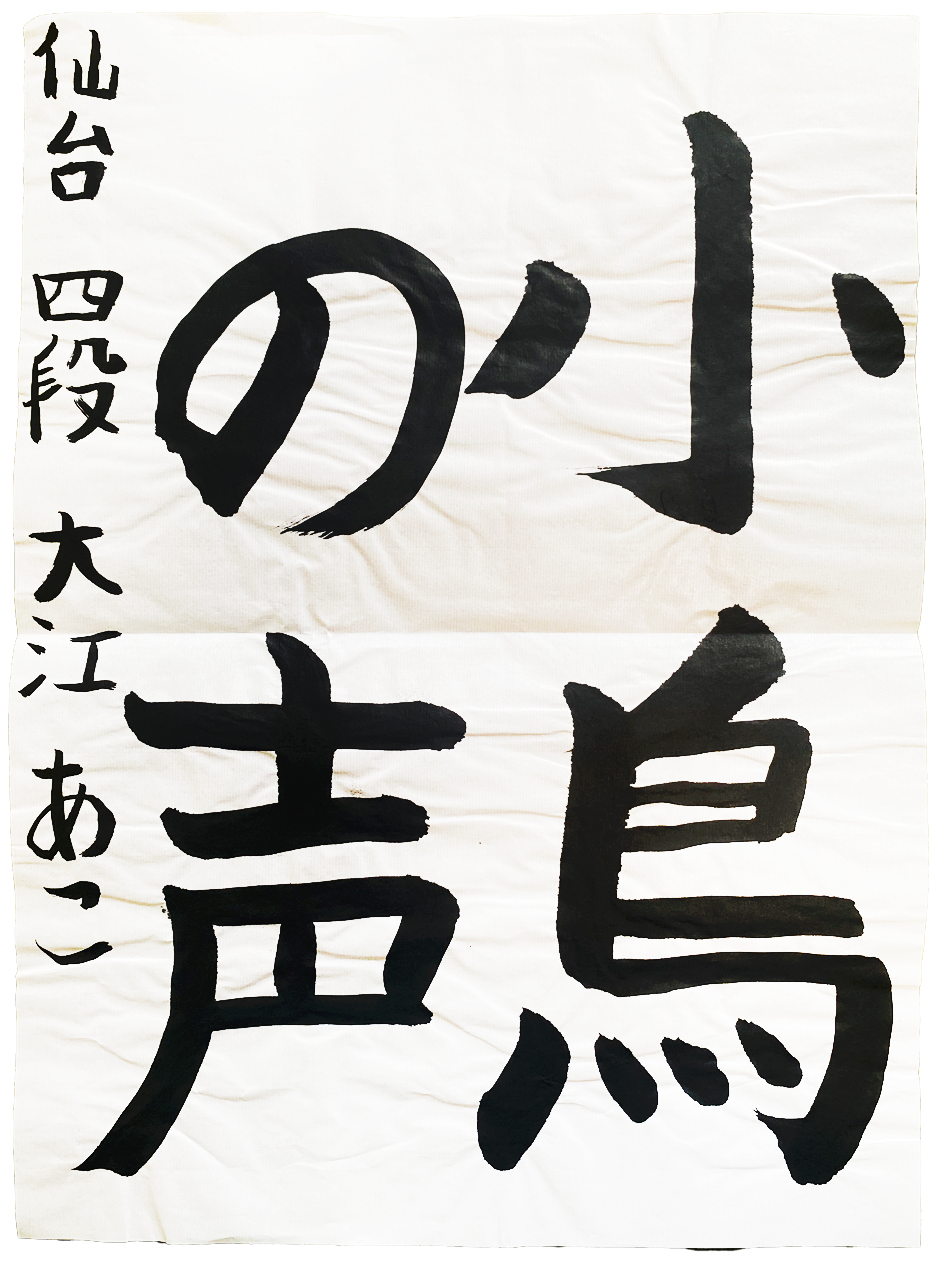 小鳥
の声
仙台 四段 大江 あこ